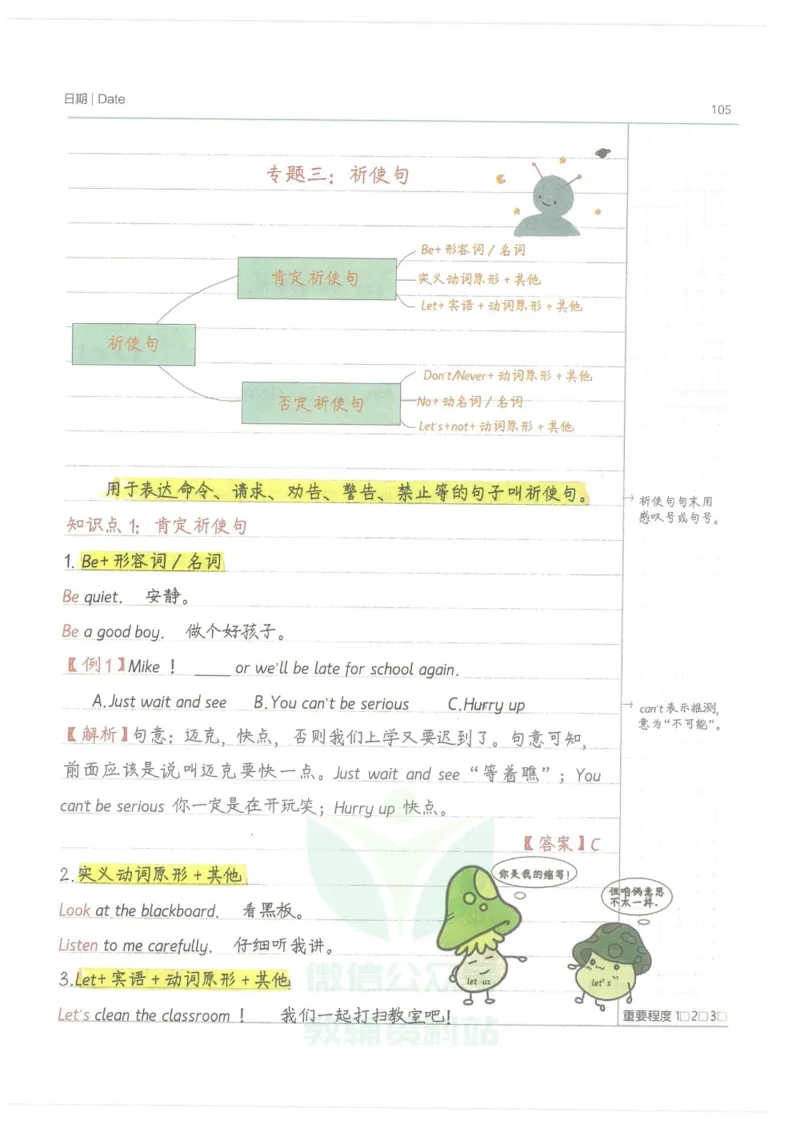 日期 | Date
105
专题三：祈使句
Be+ 形容词 / 名词
肯定祈使句
实义动词原形 + 其他
Let+ 宾语 + 动词原形 + 其他
祈使句
Don't/Never+ 动词原形 + 其他
否定祈使句
No+ 动名词 / 名词
Let's+not+ 动词原形 + 其他
用于表达命令、请求、劝告、警告、禁止等的句子叫祈使句。
祈使句句末用
感叹号或句号。
知识点 1：肯定祈使句
1. Be+ 形容词 / 名词
Be quiet. 安静。
Be a good boy. 做个好孩子。
【例1】Mike ! ____ or we'll be late for school again.
A.Just wait and see B.You can't be serious C.Hurry up
can't 表示推测，
意为“不可能”。
【解析】句意：迈克，快点，否则我们上学又要迟到了。句意可知，
前面应该是说叫迈克要快一点。Just wait and see “等着瞧”；You
can't be serious 你一定是在开玩笑；Hurry up 快点。
【答案】C
2.实义动词原形 + 其他
你是我的缩写！
但咱俩意思
不太一样。
Look at the blackboard. 看黑板。
Listen to me carefully. 仔细听我讲。
3.Let+ 宾语 + 动词原形 + 其他
let us
let's
Let's clean the classroom ! 我们一起打扫教室吧！
重要程度 1□2□3□
微信公众号
教辅资料站